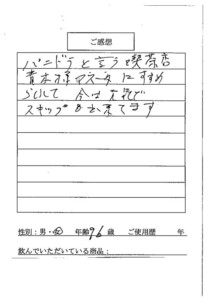 ご感想
パンドラと言う喫茶店
青木様マスターにすすめ
らして 今は元気で
スキップも出来てます
性別:男・女 年齢96歳 ご使用歴 年
飲んでいただいている商品: